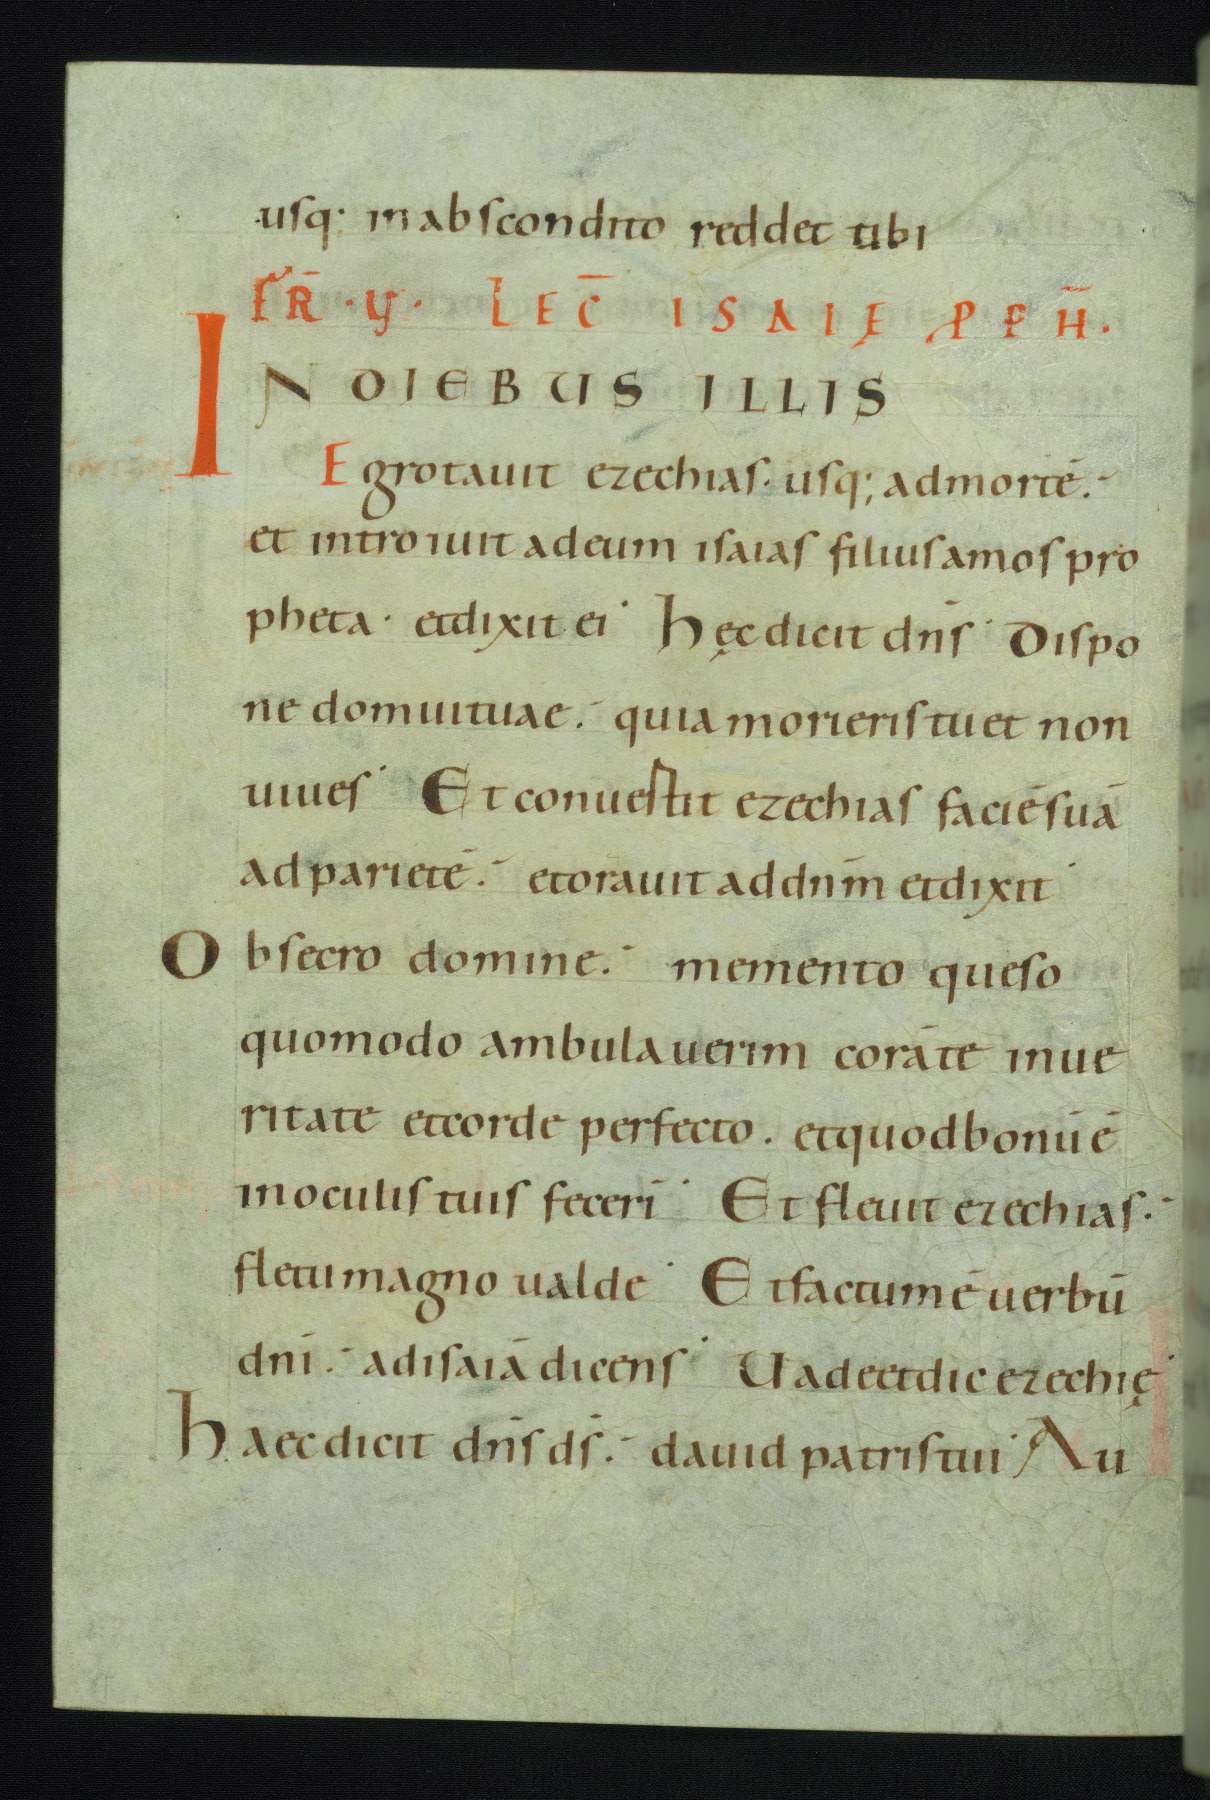 usq; in abscondito reddet tibi
FR̄ · V · LEC̄ ISAIĘ PPH̄.
IN DIEBUS ILLIS
Egrotauit ezechias · usq; ad mortē.
et introiuit ad eum isaias filius amos pro
pheta · et dixit ei · hęc dicit dn̄s · Dispo
ne domui tuae. quia morieris tu et non
uiues · Et conuertit ezechias faciē suā
ad parietē. et orauit ad dn̄m et dixit ·
Obsecro domine. memento queso
quomodo ambulauerim corā te in ue
ritate et corde perfecto. et quod bonū ē
in oculis tuis fecerī · Et fleuit ezechias.
fletu magno ualde · Et factum ē uerbū
dnī. ad isaiā dicens · Uade et dic ezechię ·
haec dicit dn̄s ds̄. dauid patris tui · Au